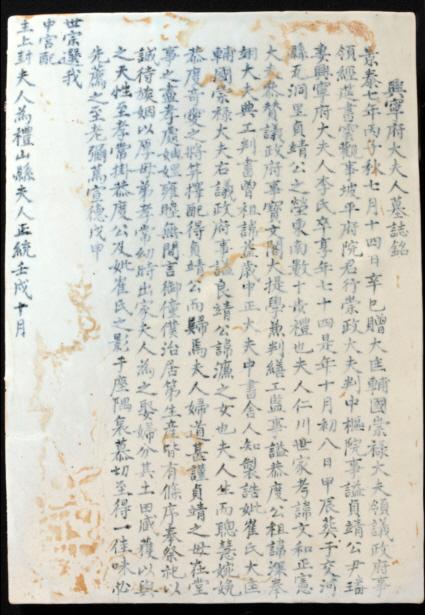 興寧府大夫人墓誌銘
景泰七年丙子秋七月十四日辛巳贈大匡輔國崇祿大夫領議政府事
領經筵書雲觀事坡平府院君行崇政大夫判中樞院事謚貞靖公尹璠
妻興寧府大夫人李氏卒享年七十四是年十月初八日甲辰葬于交河
縣瓦洞里貞靖公之塋東南數十步禮也夫人仁川世家考諱文和正憲
大夫叅贊議政府事寶文閣大提學兼判繕工監事謚恭度公祖諱深奉
翊大夫典工判書曾祖諱益歲中正大夫中書舍人知製誥妣崔氏大匡
輔國崇祿大夫右議政府事謚良靖公諱濂之女也夫人生而聰慧婉娩
恭度奇愛之將笄擇配得貞靖公而歸焉夫人婦道甚謹貞靖之母在堂
事之盡孝處妯娌雍睦無間言御僮僕治居第生産皆有條序奉祭祀以
誠待族姻以厚母弟孝常幼時出家夫人爲之娶婦分其土田臧獲以與
之天性至孝常掛恭度公及妣崔氏之影于座隅哀慕切至得一佳味必
先薦之至老彌篤宣德戊申
世宗選我
中宮配
主上封夫人爲禮山縣夫人正統壬戌十月